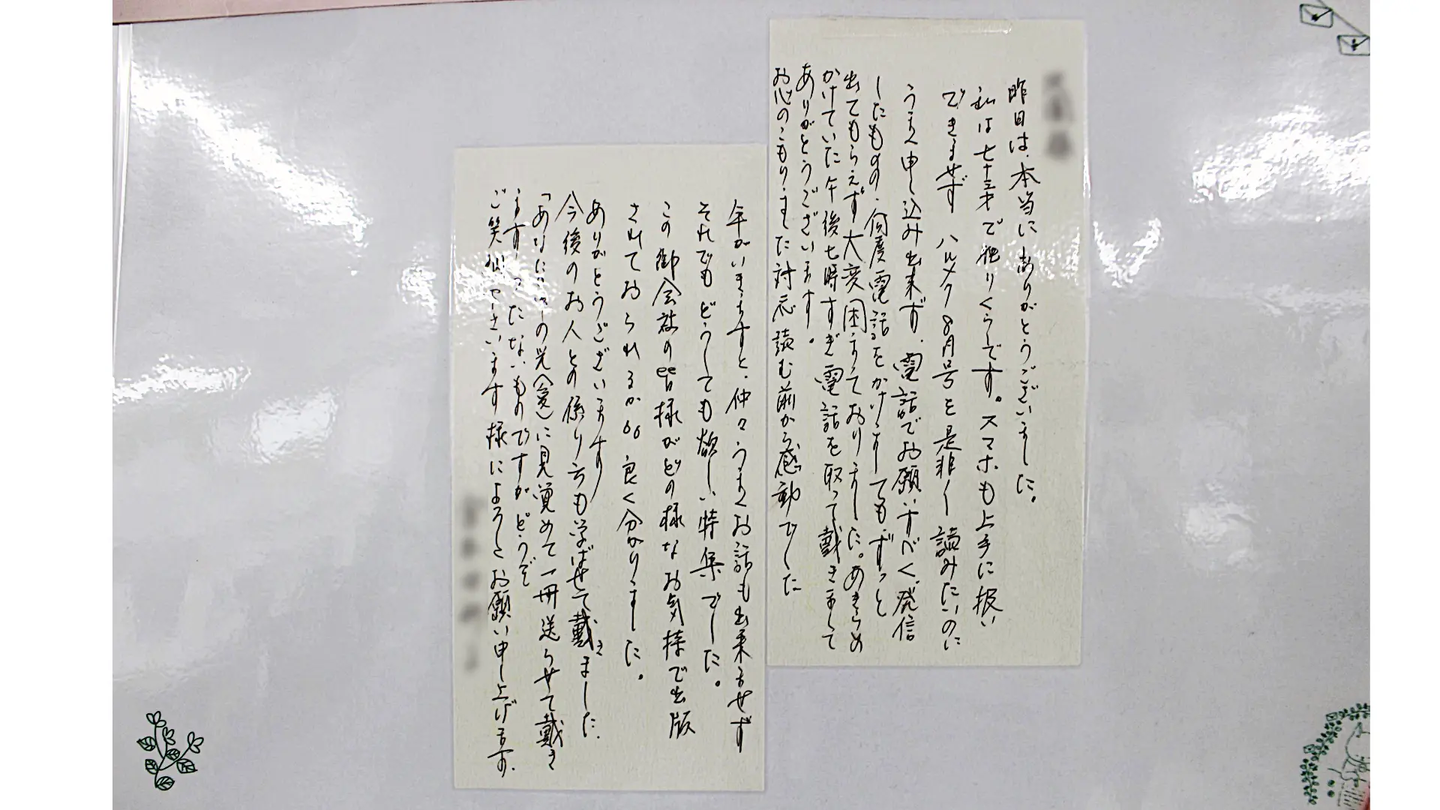 昨日は、本当にありがとうございました。
私は七十三才で独りくらしです。スマホも上手に扱い
できませず ハルメク8月号を是非く読みたいのに
うまく申し込み出来ず、電話でお願いすべく、発信
したものの、何度電話をかけましてもずっと
出てもらえず大変困まっておりました。あきらめ
かけていた午後七時すぎ電話を取って戴きまして
ありがとうございます。
お心のこもりました対応読む前から感動でした
年がいきますと、仲々うまくお話も出来ませず
それでもどうしても欲しい特集でした。
この御会社の皆様がどの様なお気持で出版
されておられるか 良く分かりました。
ありがとうございます
今後のお人との係り方も学ばせて戴きました。
「あなに の光会」に見覚めて一冊送らせて戴き
ます。つたないものですがどうぞ
ご笑 下さいます様によろしくお願い申し上げます。